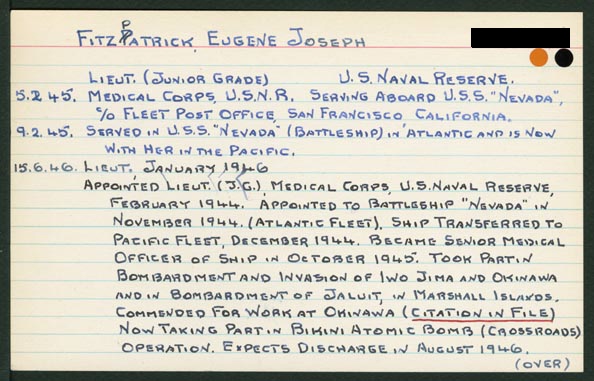 FITZPATRICK, EUGENE JOSEPH
LIEUT. (JUNIOR GRADE) U.S. NAVAL RESERVE.
5.2.45. MEDICAL CORPS, U.S.N.R. SERVING ABOARD U.S.S. "NEVADA",
c/o FLEET POST OFFICE, SAN FRANCISCO, CALIFORNIA.
9.2.45. SERVED IN U.S.S. "NEVADA" (BATTLESHIP) IN ATLANTIC AND IS NOW
WITH HER IN THE PACIFIC.
15.6.46. LIEUT, JANUARY 1946
APPOINTED LIEUT. (J.G.), MEDICAL CORPS, U.S. NAVAL RESERVE,
FEBRUARY 1944. APPOINTED TO BATTLESHIP "NEVADA" IN
NOVEMBER 1944. (ATLANTIC FLEET), SHIP TRANSFERRED TO
PACIFIC FLEET, DECEMBER 1944. BECAME SENIOR MEDICAL
OFFICER OF SHIP IN OCTOBER 1945. TOOK PART IN
BOMBARDMENT AND INVASION OF IWO JIMA AND OKINAWA
AND IN BOMBARDMENT OF JALUIT, IN MARSHALL ISLANDS.
COMMENDED FOR WORK AT OKINAWA (CITATION IN FILE)
NOW TAKING PART IN BIKINI ATOMIC BOMB (CROSSROADS)
OPERATION. EXPECTS DISCHARGE IN AUGUST 1946.
(OVER)